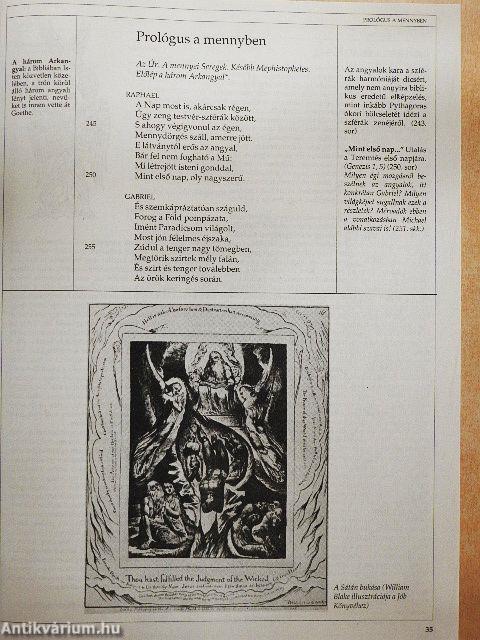 PROLÓGUS A MENNYBEN
A három Arkan-
gyal: a Bibliában Is-
ten közvetlen köze-
lében, a trón körül
álló három angyali
lényt jelenti, nevü-
ket is innen vette át
Goethe.
Prológus a mennyben
Az Úr. A mennyei Seregek. Később Mephistopheles.
Előlép a három Arkangyal*.
RAPHAEL
A Nap most is, akárcsak régen,
Úgy zeng testvér-szférák között,
245 S ahogy végigvonul az égen,
Mennydörgés száll, amerre jött.
E látványtól erős az angyal,
Bár fel nem fogható a Mű:
Mi létrejött isteni gonddal,
250 Mint első nap, oly nagyszerű.
GABRIEL
És szemkápráztatóan száguld,
Forog a Föld pompázata,
Imént Paradicsom világolt,
Most jön félelmes éjszaka,
255 Zúdul a tenger nagy tömegben,
Megtörik szirtek mély falán,
És szirt és tenger tovalebben
Az örök keringés során.
Az angyalok kara a szfé-
rák harmóniáját dicséri,
amely nem annyira bibli-
kus eredetű elképzelés,
mint inkább Pythagoras
ókori bölcseletét idézi a
szférák zenéjéről. (243.
sor)
„Mint első nap..." Utalás
a Teremtés első napjára.
(Genezis 1, 5) (250. sor)
Milyen égi mozgásról be-
szélnek az angyalok, itt
konkrétan Gabriel? Milyen
világképet sugallnak ezek a
részletek? Mérvadók ebben
a vonatkozásban Michael
alábbi szavai is! (251. skk.)
Thou hast fulfilled the Judgment of the Wicked
A Sátán bukása (William
Blake illusztrációja a Jób
Könyvéhez)
35
Antikvárium.hu